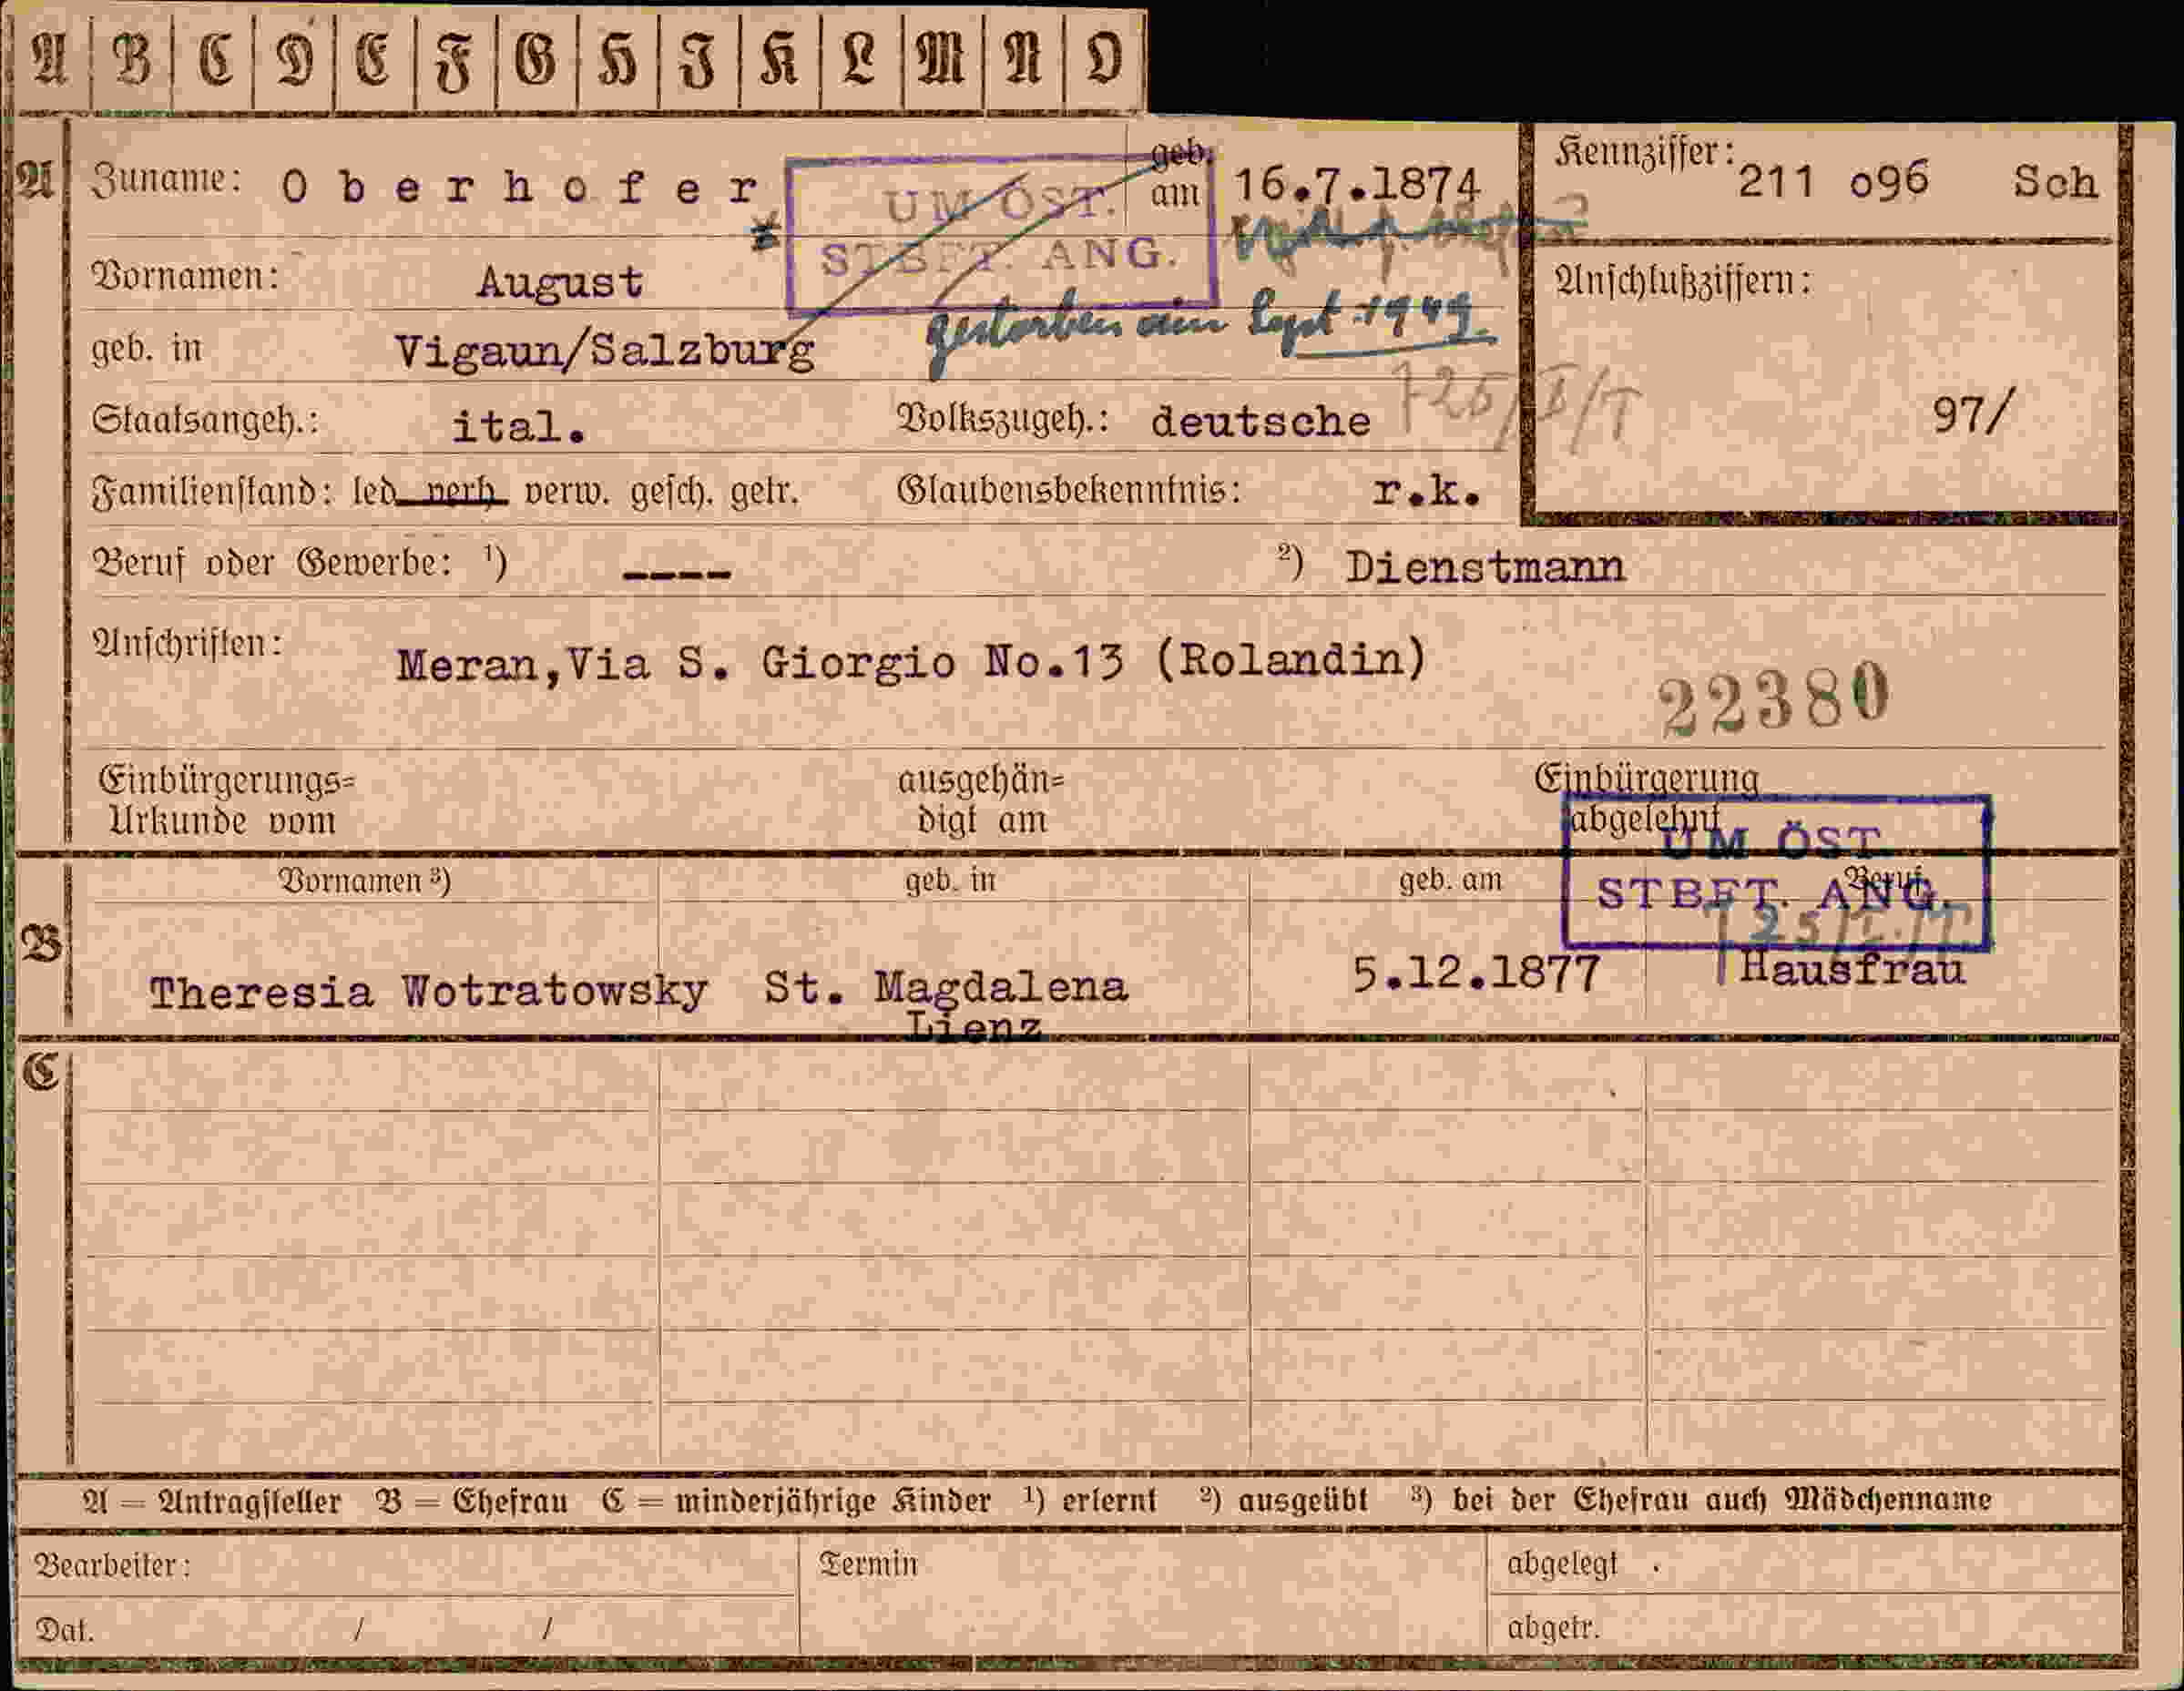 A B C D E F G H I K L M N O
A Zuname: Oberhofer geb. am 16.7.1874 Kennziffer: 211 o96 Sch
UM ÖST.
STBFT. ANG.
Vornamen: August Anschlußziffern:
gestorben am Sept. 1949.
geb. in Vigaun/Salzburg
Staatsangeh.: ital. Volkszugeh.: deutsche 97/
Familienstand: led. verh. verw. gesch. getr. Glaubensbekenntnis: r.k.
Beruf oder Gewerbe: ¹) ---- ²) Dienstmann
Anschriften: Meran,Via S. Giorgio No.13 (Rolandin)
22380
Einbürgerungs= ausgehän= Einbürgerung
Urkunde vom digt am abgelehnt
UM ÖST.
STBFT. ANG.
Vornamen ³) geb. in geb. am Beruf
B
Theresia Wotratowsky St. Magdalena 5.12.1877 Hausfrau
Lienz
C
A = Antragsteller B = Ehefrau C = minderjährige Kinder ¹) erlernt ²) ausgeübt ³) bei der Ehefrau auch Mädchenname
Bearbeiter: Termin abgelegt .
Dat. / / abgetr.